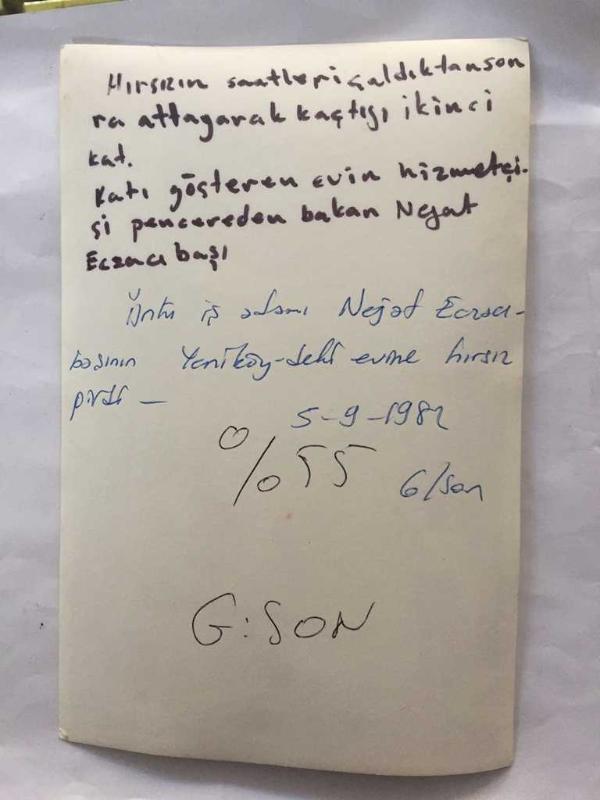 Hırsızın saatleri çaldıktan son
ra atlayarak kaçtığı ikinci
kat.
Katı gösteren evin hizmetçi-
si pencereden bakan Nejat
Eczacıbaşı
Ünlü iş adamı Nejat Eczacı-
başının Yeniköy-deki evine hırsız
girdi —
5-9-1982
%55
G/son
G:SON